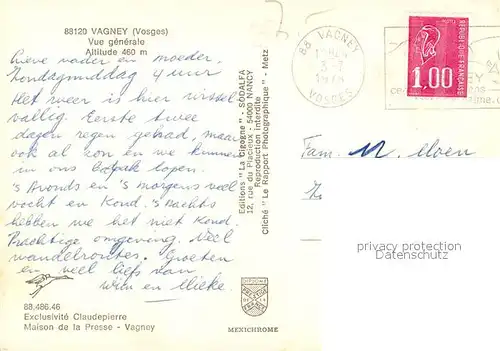 88120 VAGNEY (Vosges)
Vue générale
Altitude 460 m
Lieve vader en moeder.
Zondagmiddag 4 uur
Het weer is hier wissel
vallig. Eerste twee
dagen regen gehad, maar
ook al zon en we kunnen
in ons lopen.
's Avonds en 's morgens veel
vocht en koud. 's Nachts
hebben we het niet koud.
Prachtige omgeving. Veel
wandelroutes. Groeten
en veel liefs van
Wim en Mieke.
88.486.46
Exclusivité Claudepierre
Maison de la Presse - Vagney
Editions "La Cigogne" - SODALFA
12, rue du Placieux - 54000 NANCY
Reproduction interdite
Cliché "Le Rapport Photographique" - Metz
MEXICHROME
88 VAGNEY
VOSGES
1,00
REPUBLIQUE FRANÇAISE
Fam.
privacy protection
Datenschutz